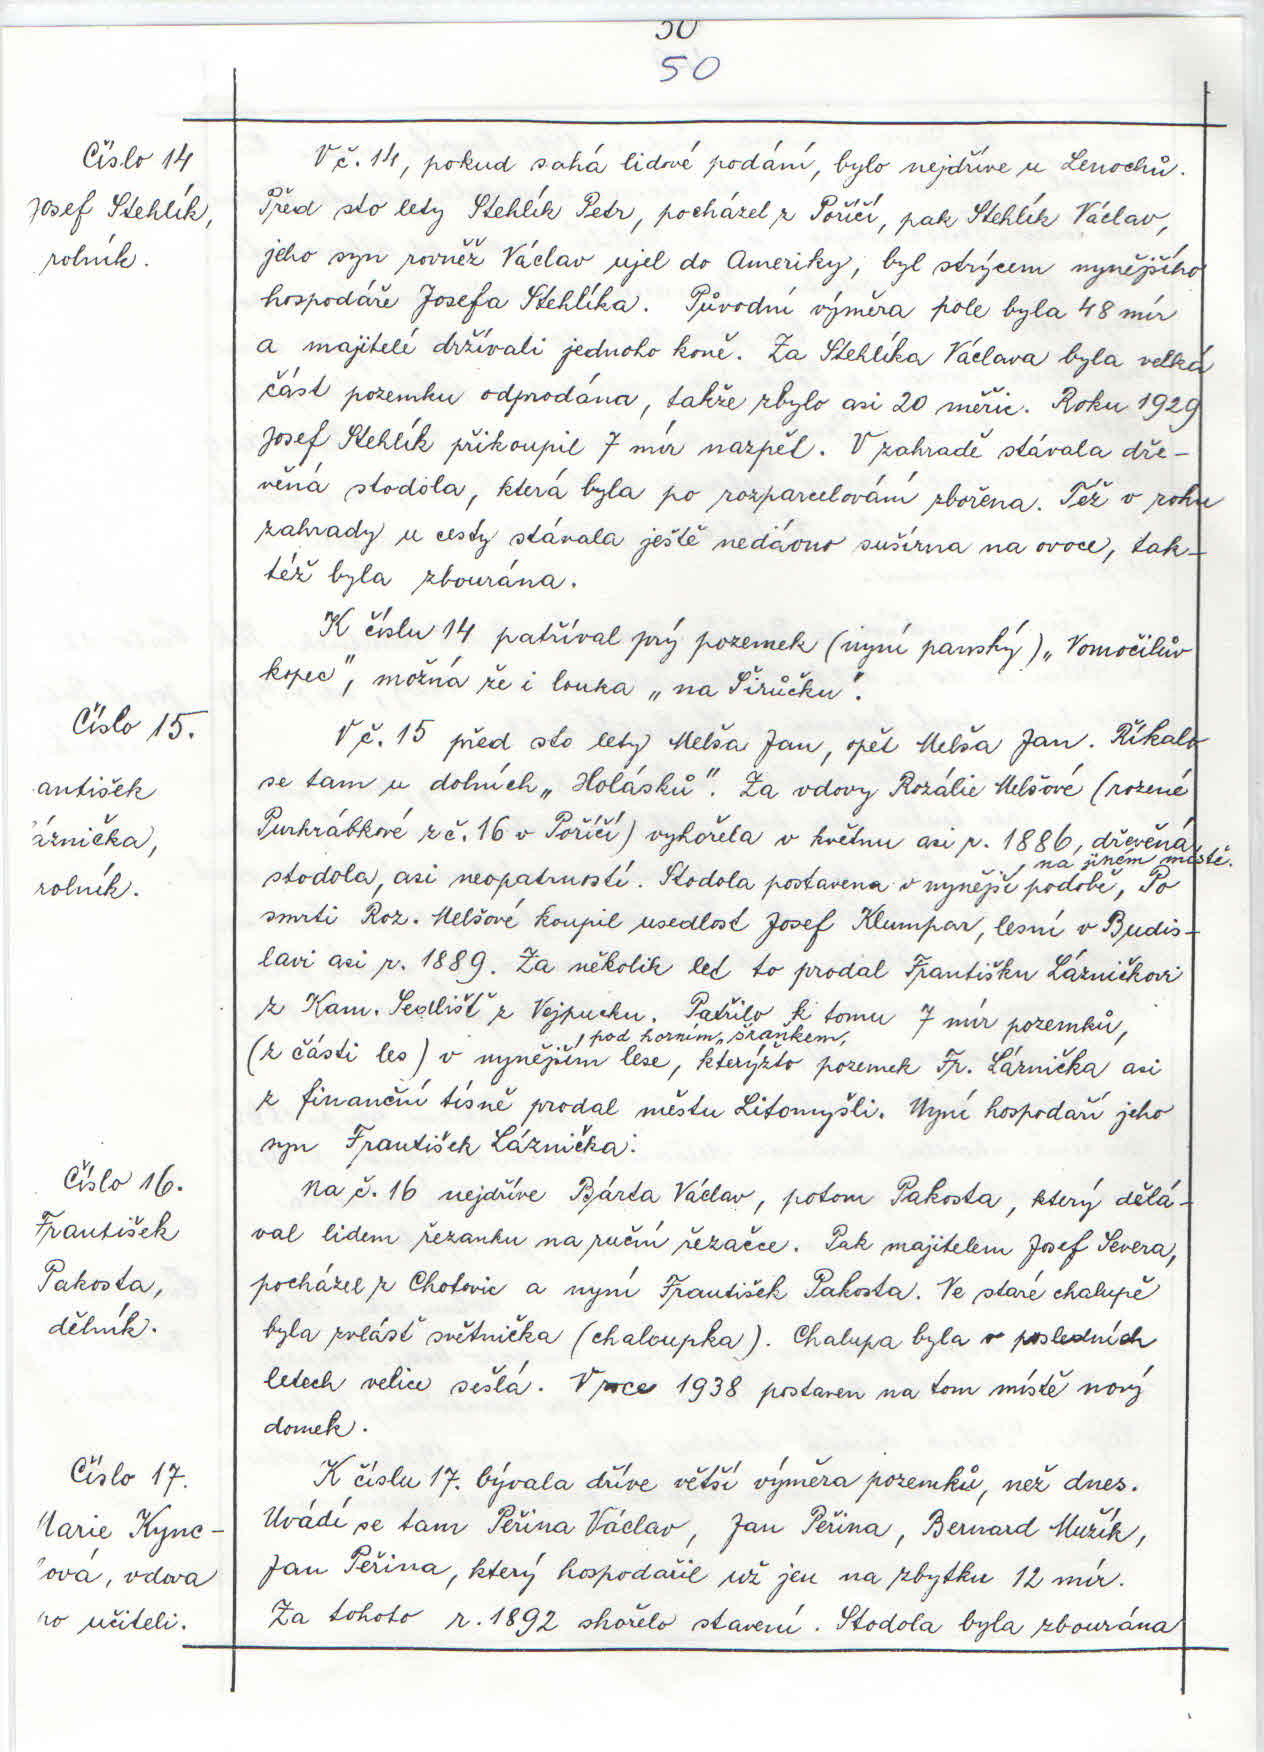 50
50
Číslo 14
Josef Stehlík,
rolník.
V č. 14, pokud sahá lidové podání, bylo nejdříve u Lenochů.
Před sto lety Stehlík Petr, pocházel z Poříčí, pak Stehlík Václav,
jeho syn rovněž Václav ujel do Ameriky, byl strýcem nynějšího
hospodáře Josefa Stehlíka. Původní výměra pole byla 48 mír
a majitelé držívali jednoho koně. Za Stehlíka Václava byla velká
část pozemku odprodána, takže zbylo asi 20 měřic. Roku 1929
Josef Stehlík přikoupil 7 mír nazpět. V zahradě stávala dře-
věná stodola, která byla po rozparcelování zbořena. Též v rohu
zahrady u cesty stávala ještě nedávno sušírna na ovoce, tak-
též byla zbourána.
K číslu 14 patříval prý pozemek (nyní panský) „Vomočilův
kopec", možná že i louka „na Širůčku".
Číslo 15.
antišek
áznička,
rolník.
V č. 15 před sto lety Melša Jan, opět Melša Jan. Říkalo
se tam u dolních „Holásků". Za vdovy Rozálie Melšové (rozené
Purkrábkové z č. 16 v Poříčí) vyhořela v květnu asi r. 1886, dřevěná
, na jiném místě.
stodola, asi neopatrností. Stodola postavena v nynější podobě, Po
smrti Roz. Melšové koupil usedlost Josef Klumpar, lesní v Budis-
lavi asi r. 1889. Za několik let to prodal Františku Lázničkovi
z Kam. Sedlišť z Vejpucku. Patřilo k tomu 7 mír pozemků,
pod horním „šraňkem,
(z části les) v nynějším lese, kterýžto pozemek Fr. Láznička asi
z finanční tísně prodal městu Litomyšli. Nyní hospodaří jeho
syn František Láznička.
Číslo 16.
František
Pakosta,
dělník.
Na č. 16 nejdříve Bárta Václav, potom Pakosta, který dělá-
val lidem řezanku na ruční řezačce. Pak majitelem Josef Severa,
pocházel z Chotovic a nyní František Pakosta. Ve staré chalupě
byla zvlášť světnička (chaloupka). Chalupa byla v posledních
letech velice sešlá. V roce 1938 postaven na tom místě nový
domek.
Číslo 17.
Marie Kync-
lová, vdova
po učiteli.
K číslu 17. bývala dříve větší výměra pozemků, než dnes.
Uvádí se tam Peřina Václav, Jan Peřina, Bernard Mužík,
Jan Peřina, který hospodařil už jen na zbytku 12 mír.
Za tohoto r. 1892 shořelo stavení. Stodola byla zbourána